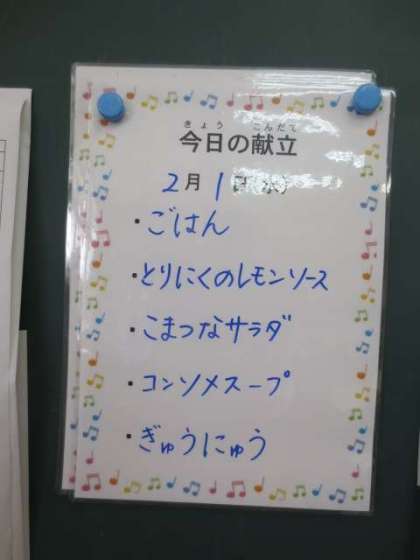 きょう こんだて
今日の献立
2月1日(水)
・ごはん
・とりにくのレモンソース
・こまつなサラダ
・コンソメスープ
・ぎゅうにゅう